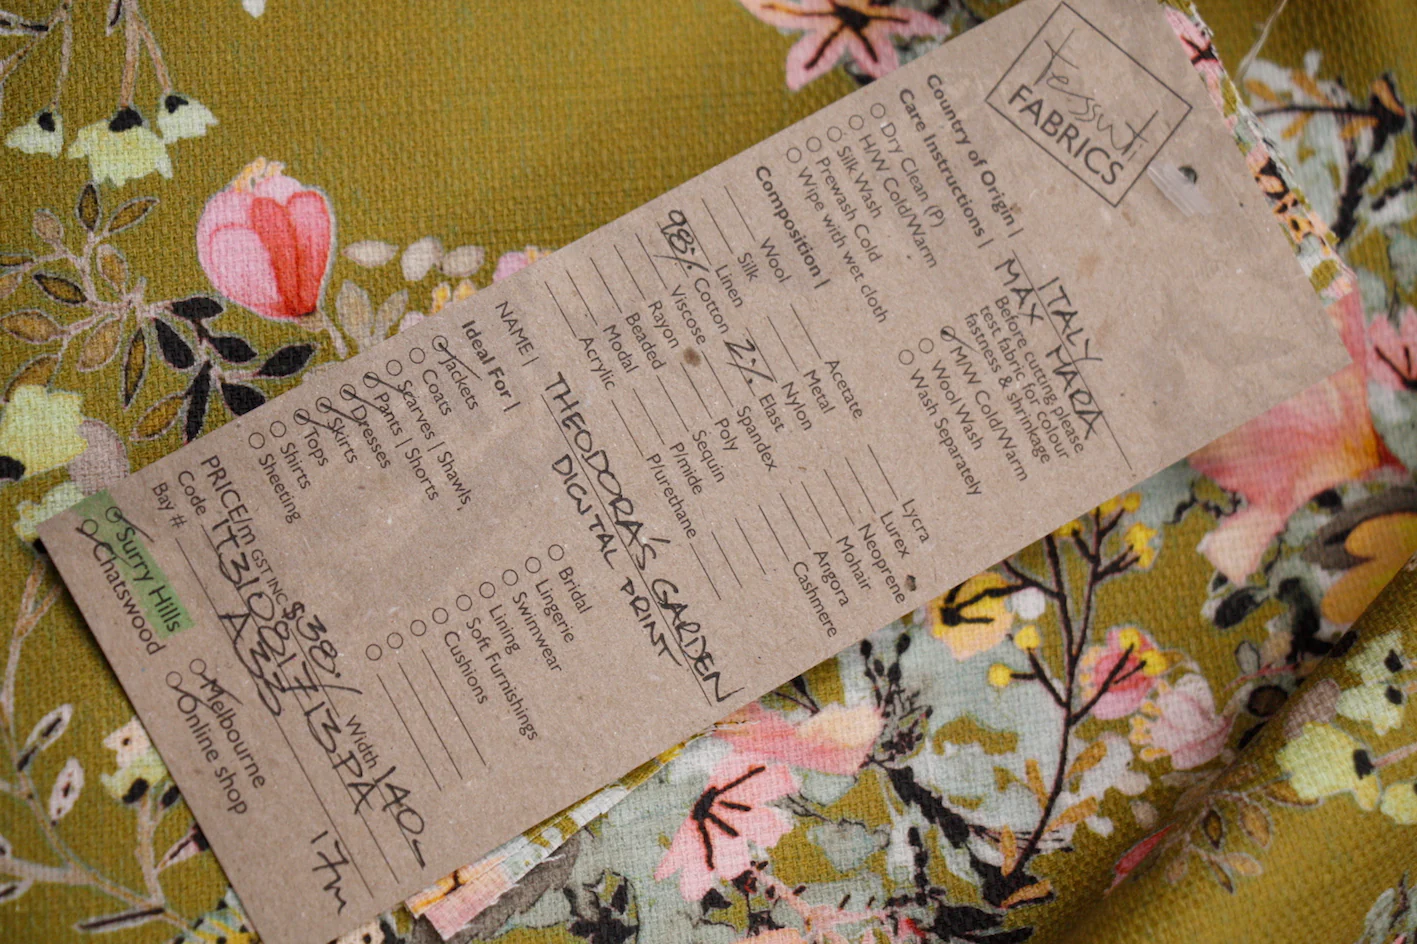 Tessuti
FABRICS
Country of Origin | ITALY
MAX MARA
Care Instructions | Before cutting please
test fabric for colour
fastness & shrinkage
Dry Clean (P)
H/W Cold/Warm
Silk Wash
Prewash Cold
Wipe with wet cloth
M/W Cold/Warm
Wool Wash
Wash Separately
Composition |
Wool
Silk
Linen
98% Cotton
Viscose
Rayon
Beaded
Modal
Acrylic
Acetate
Metal
Nylon
2% Elast
Spandex
Poly
Sequin
P/mide
P/urethane
Lycra
Lurex
Neoprene
Mohair
Angora
Cashmere
NAME | THEODORA'S GARDEN
DIGITAL PRINT
Ideal For |
Jackets
Coats
Scarves | Shawls
Pants | Shorts
Dresses
Skirts
Tops
Shirts
Sheeting
Bridal
Lingerie
Swimwear
Lining
Soft Furnishings
Cushions
PRICE/m GST INC $38./ Width 140-
Code
Bay # A33 17m
Surry Hills
Chatswood
Melbourne
Online shop